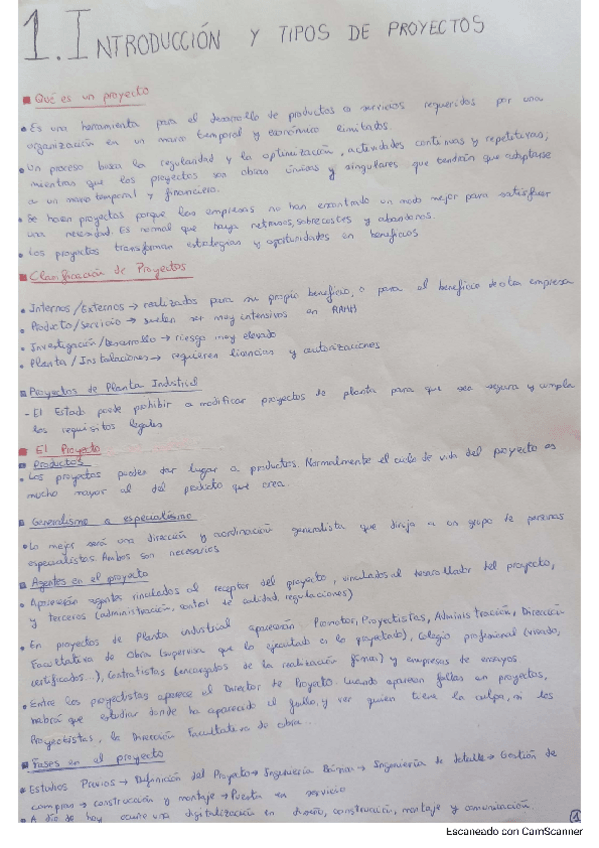 1. INTRODUCCIÓN Y TIPOS DE PROYECTOS
Qué es un proyecto
• Es una herramienta para el desarrollo de productos o servicios requeridos por una
organización en un marco temporal y económico limitados.
• Un proceso busca la regularidad y la optimización, actividades continuas y repetitivas;
mientras que los proyectos son obras únicas y singulares que tendrán que adaptarse
a un marco temporal y financiero.
• Se hacen proyectos porque las empresas no han encontrado un modo mejor para satisfacer
una necesidad. Es normal que haya retrasos, sobrecostes y abandonos.
• Los proyectos transforman estrategias y oportunidades en beneficios
Clasificación de Proyectos
• Internos/Externos → realizados para su propio beneficio, o para el beneficio de otra empresa
• Producto/servicio → suelen ser muy intensivos en
• Investigación/Desarrollo → riesgo muy elevado
• Planta/Instalaciones → requieren licencias y autorizaciones
Proyectos de Planta Industrial
- El Estado puede prohibir o modificar proyectos de planta para que sea segura y cumpla
los requisitos legales
El Proyecto
Productos
• Los proyectos pueden dar lugar a productos. Normalmente el ciclo de vida del proyecto es
mucho mayor al del producto que crea.
Generalismo o especialismo
• Lo mejor será una dirección y coordinación generalista que dirija a un grupo de personas
especialistas. Ambos son necesarios
Agentes en el proyecto
• Aparecerán agentes vinculados al receptor del proyecto, vinculados al desarrollador del proyecto,
y terceros (administración, control de calidad, regulaciones)
• En proyectos de Planta industrial aparecerán Promotor, Proyectistas, Administración, Dirección
Facultativa de Obra (supervisa que lo ejecutado es lo proyectado), Colegio profesional (visado,
certificados...), Contratistas (encargados de la realización física) y empresas de ensayos
• Entre los proyectistas aparece el Director de Proyecto. Cuando aparecen fallos en proyectos,
habrá que estudiar donde ha aparecido el fallo, y ver quien tiene la culpa, si los
Proyectistas, la Dirección Facultativa de obra...
Fases en el proyecto
• Estudios Previos → Definición del Proyecto → Ingeniería Básica → Ingeniería de detalle → Gestión de
compras → construcción y montaje → Puesta en servicio
• A día de hoy existe una digitalización en diseño, construcción, montaje y comunicación.
1
Escaneado con CamScanner